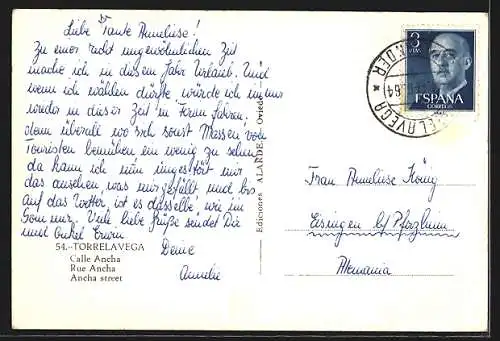 Liebe Tante Anneliese!
Zu einer recht ungewöhnlichen Zeit
mache ich in diesem Jahr Urlaub. Und
wenn ich wählen dürfte, würde ich immer
wieder in dieser Zeit in Ferien fahren,
denn überall wo sich sonst Massen von
Touristen bemühen ein wenig zu sehen
da kann ich nun ungestört mir
das ansehen, was mir gefällt und bis
auf das Wetter, ist es dasselbe wie im
Sommer. Viele liebe Grüße sendet Dir
und Onkel Erwin
Deine
Annelie
54.-TORRELAVEGA
Calle Ancha
Rue Ancha
Ancha street
Ediciones ALARDE Oviedo
3
PTAS
ESPAÑA
CORREOS
TORRELAVEGA
64
Frau Anneliese König
Eisingen b/ Pforzheim
Alemania